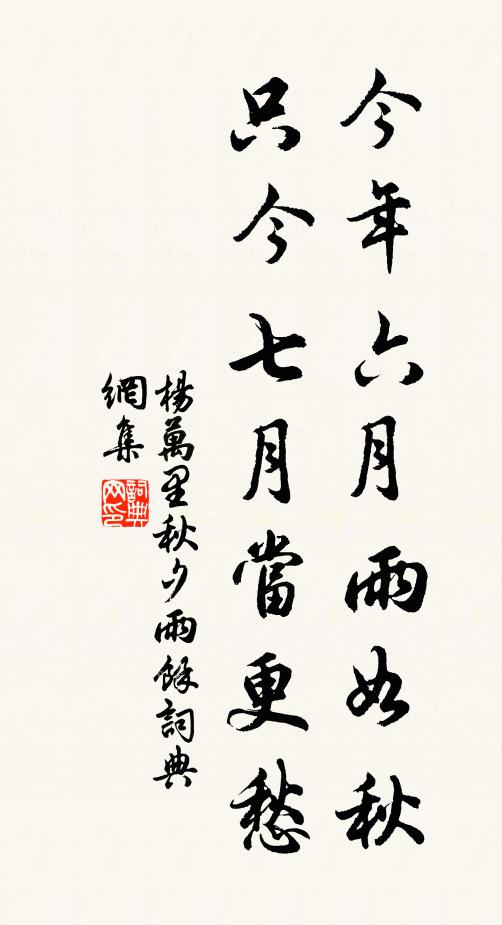 今年六月雨如秋
只今七月當更愁
楊萬里秋夕雨餘詞典
網集
詞典
网印